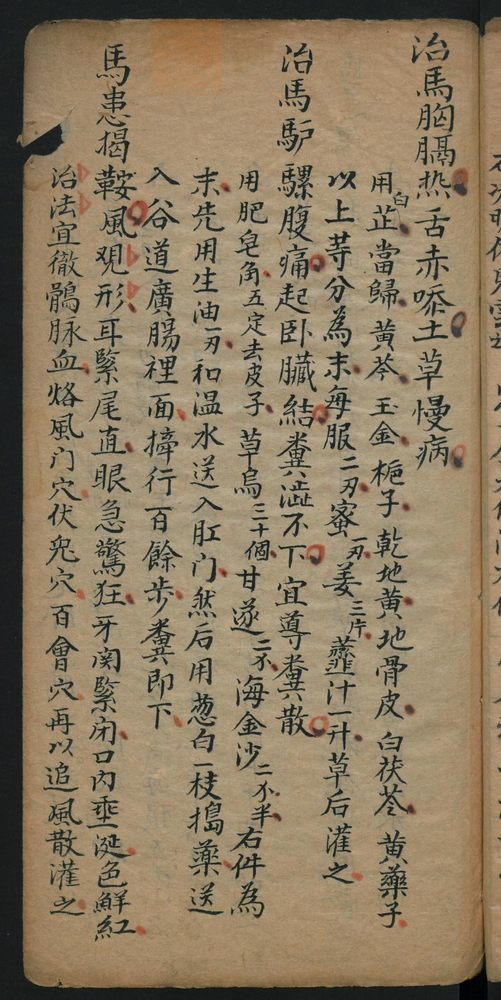 治馬胸膈热舌赤喍土草慢病
用白芷當歸黄芩玉金梔子乾地黄地骨皮白茯苓黄藥子
以上等分為末每服二刃蜜一刃姜三片虀汁一升草后灌之
治馬馿騾腹痛起卧臟結糞澁不下宜導糞散
用肥皂角五定去皮子草烏三十個甘遂二个海金沙二个半右件為
末先用生油一刃和温水送入肛门然后用葱白一枝搗藥送
入谷道廣腸裡面摔行百餘步糞即下
馬患揭鞍風覌形耳緊尾直眼急驚狂牙関緊闭口内垂涎色鮮紅
治法宜徹鶻脉血烙風门穴伏兎穴百會穴再以追風散灌之